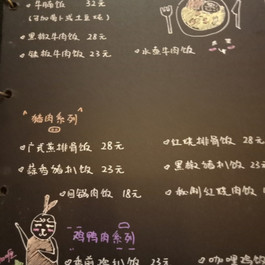 牛腩饭 32元
(可加番茄或土豆烧)
黑椒牛肉饭 28元
铁板牛肉饭 23元
水煮牛肉饭
猪肉系列
广式蒸排骨饭 28元
红烧排骨饭 28元
蒜香猪扒饭 23元
黑椒猪扒饭 23元
回锅肉饭 18元
秘制红烧肉饭
鸡鸭肉系列
香煎鸡扒饭 23元
咖喱鸡饭